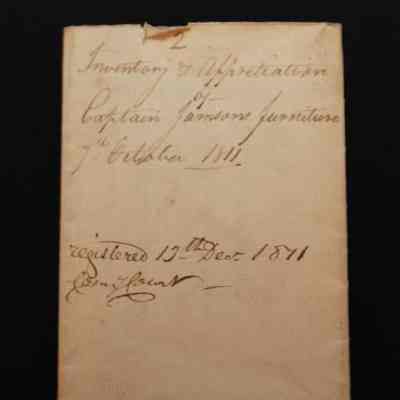 2
Inventory & Appretiation
of
Captain Jamsons furniture
7th October 1811
registered 12th Decr. 1871
Com Court